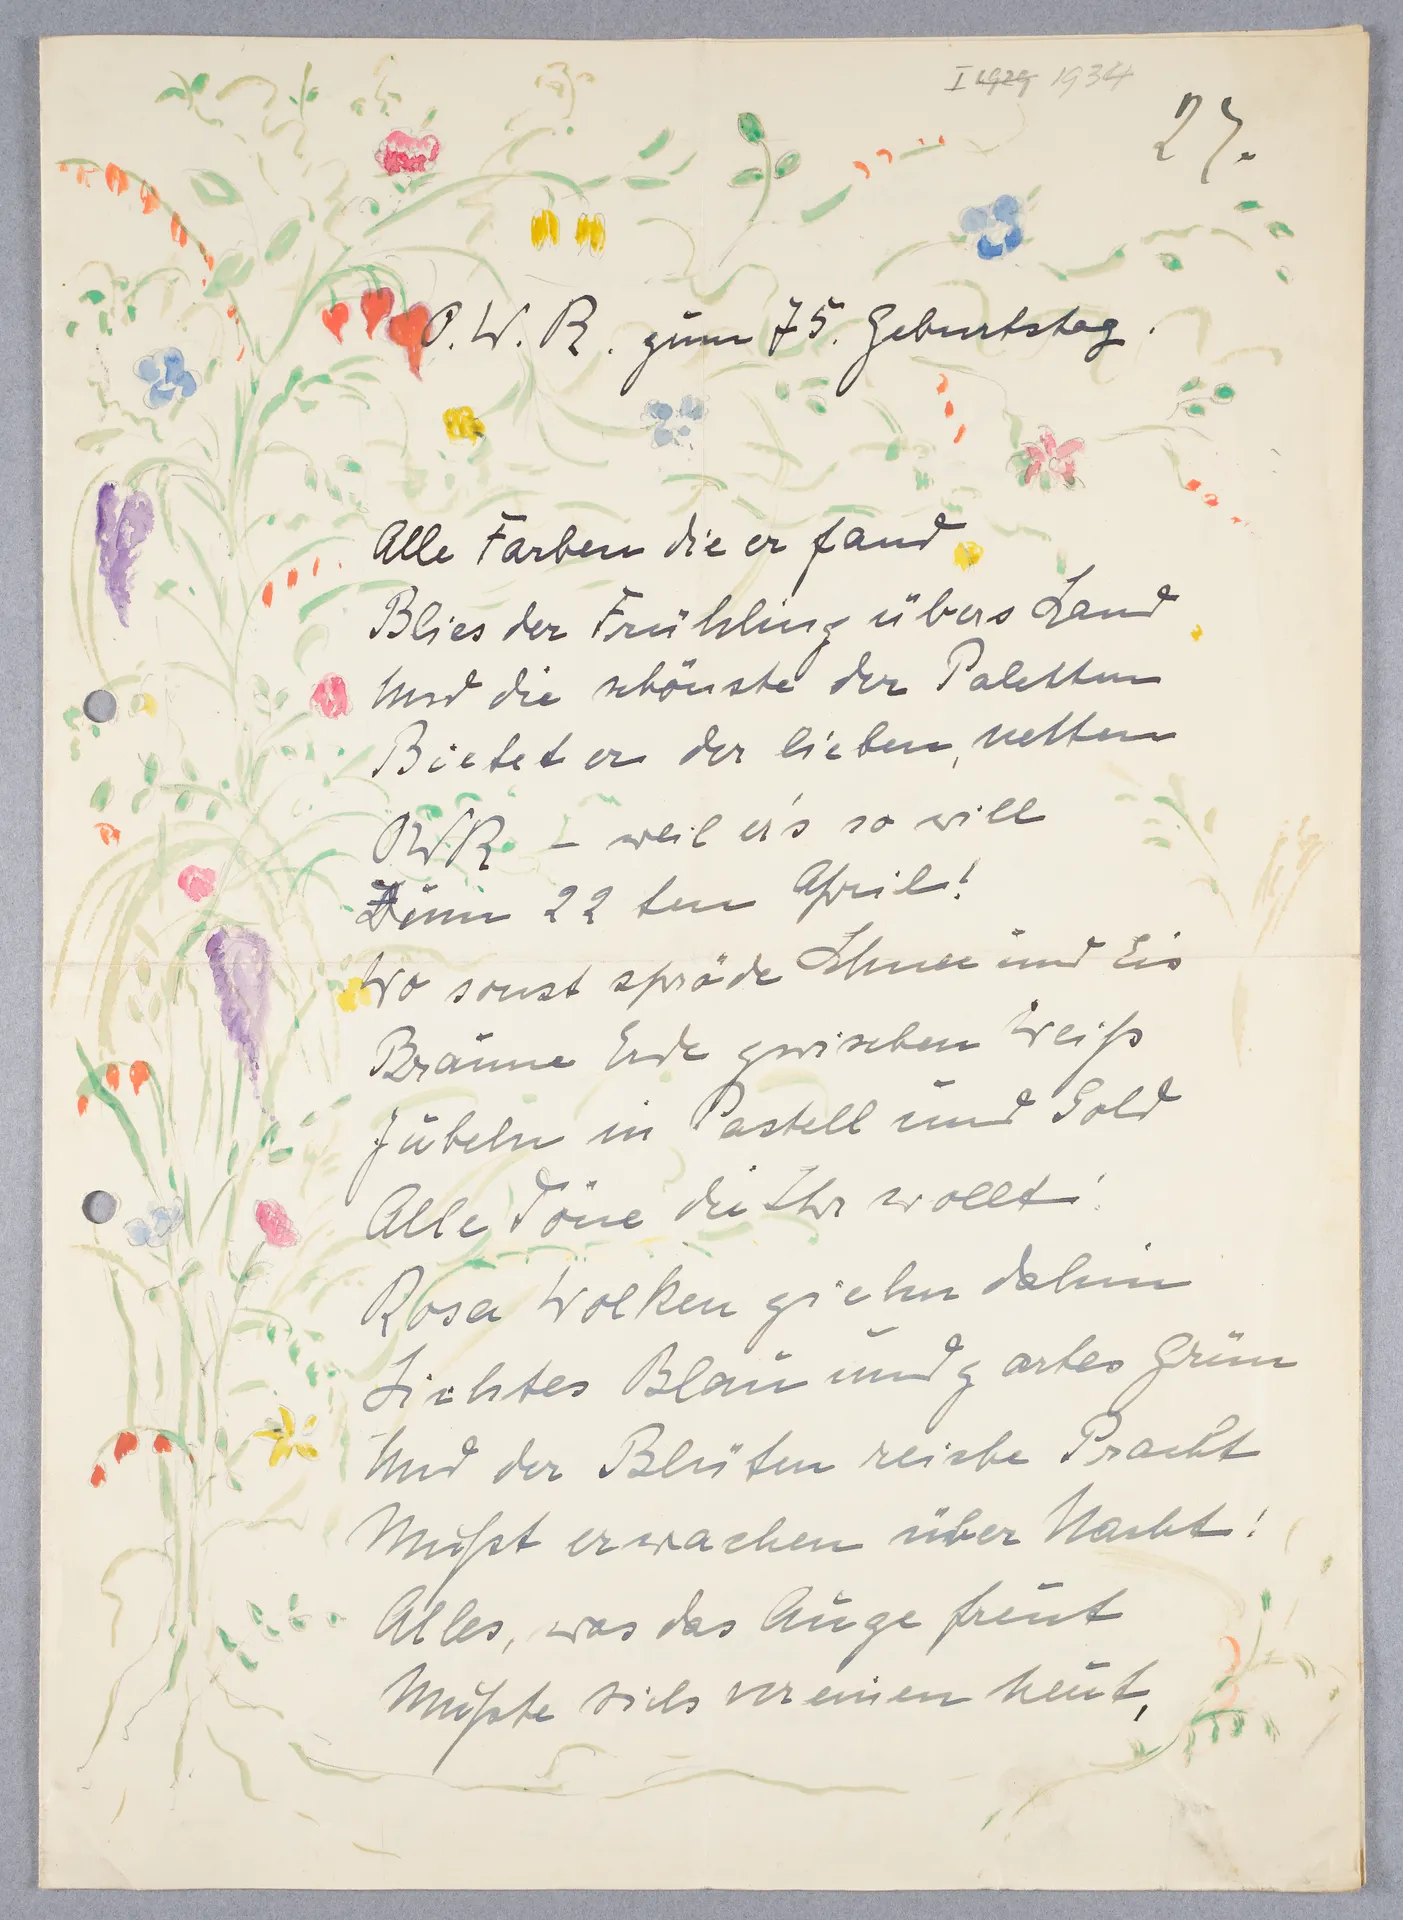 I 1929 1934
27.
O.W.R. zum 75. Geburtstag.
Alle Farben die er fand
Blies der Frühling übers Land
Und die schönste der Paletten
Bietet er der lieben, netten
OWR – weil er's so will
Zum 22 ten April!
Wo sonst spröde Schnee und Eis
Braune Erde zwischen Weiß
Jubeln in Pastell und Gold
Alle Töne die Ihr wollt!
Rosa Wolken ziehn dahin
Lichtes Blau und zartes Grün
Und der Blüten reiche Pracht
Mußt erwachen über Nacht!
Alles, was das Auge freut
Mußte sich vereinen heut,